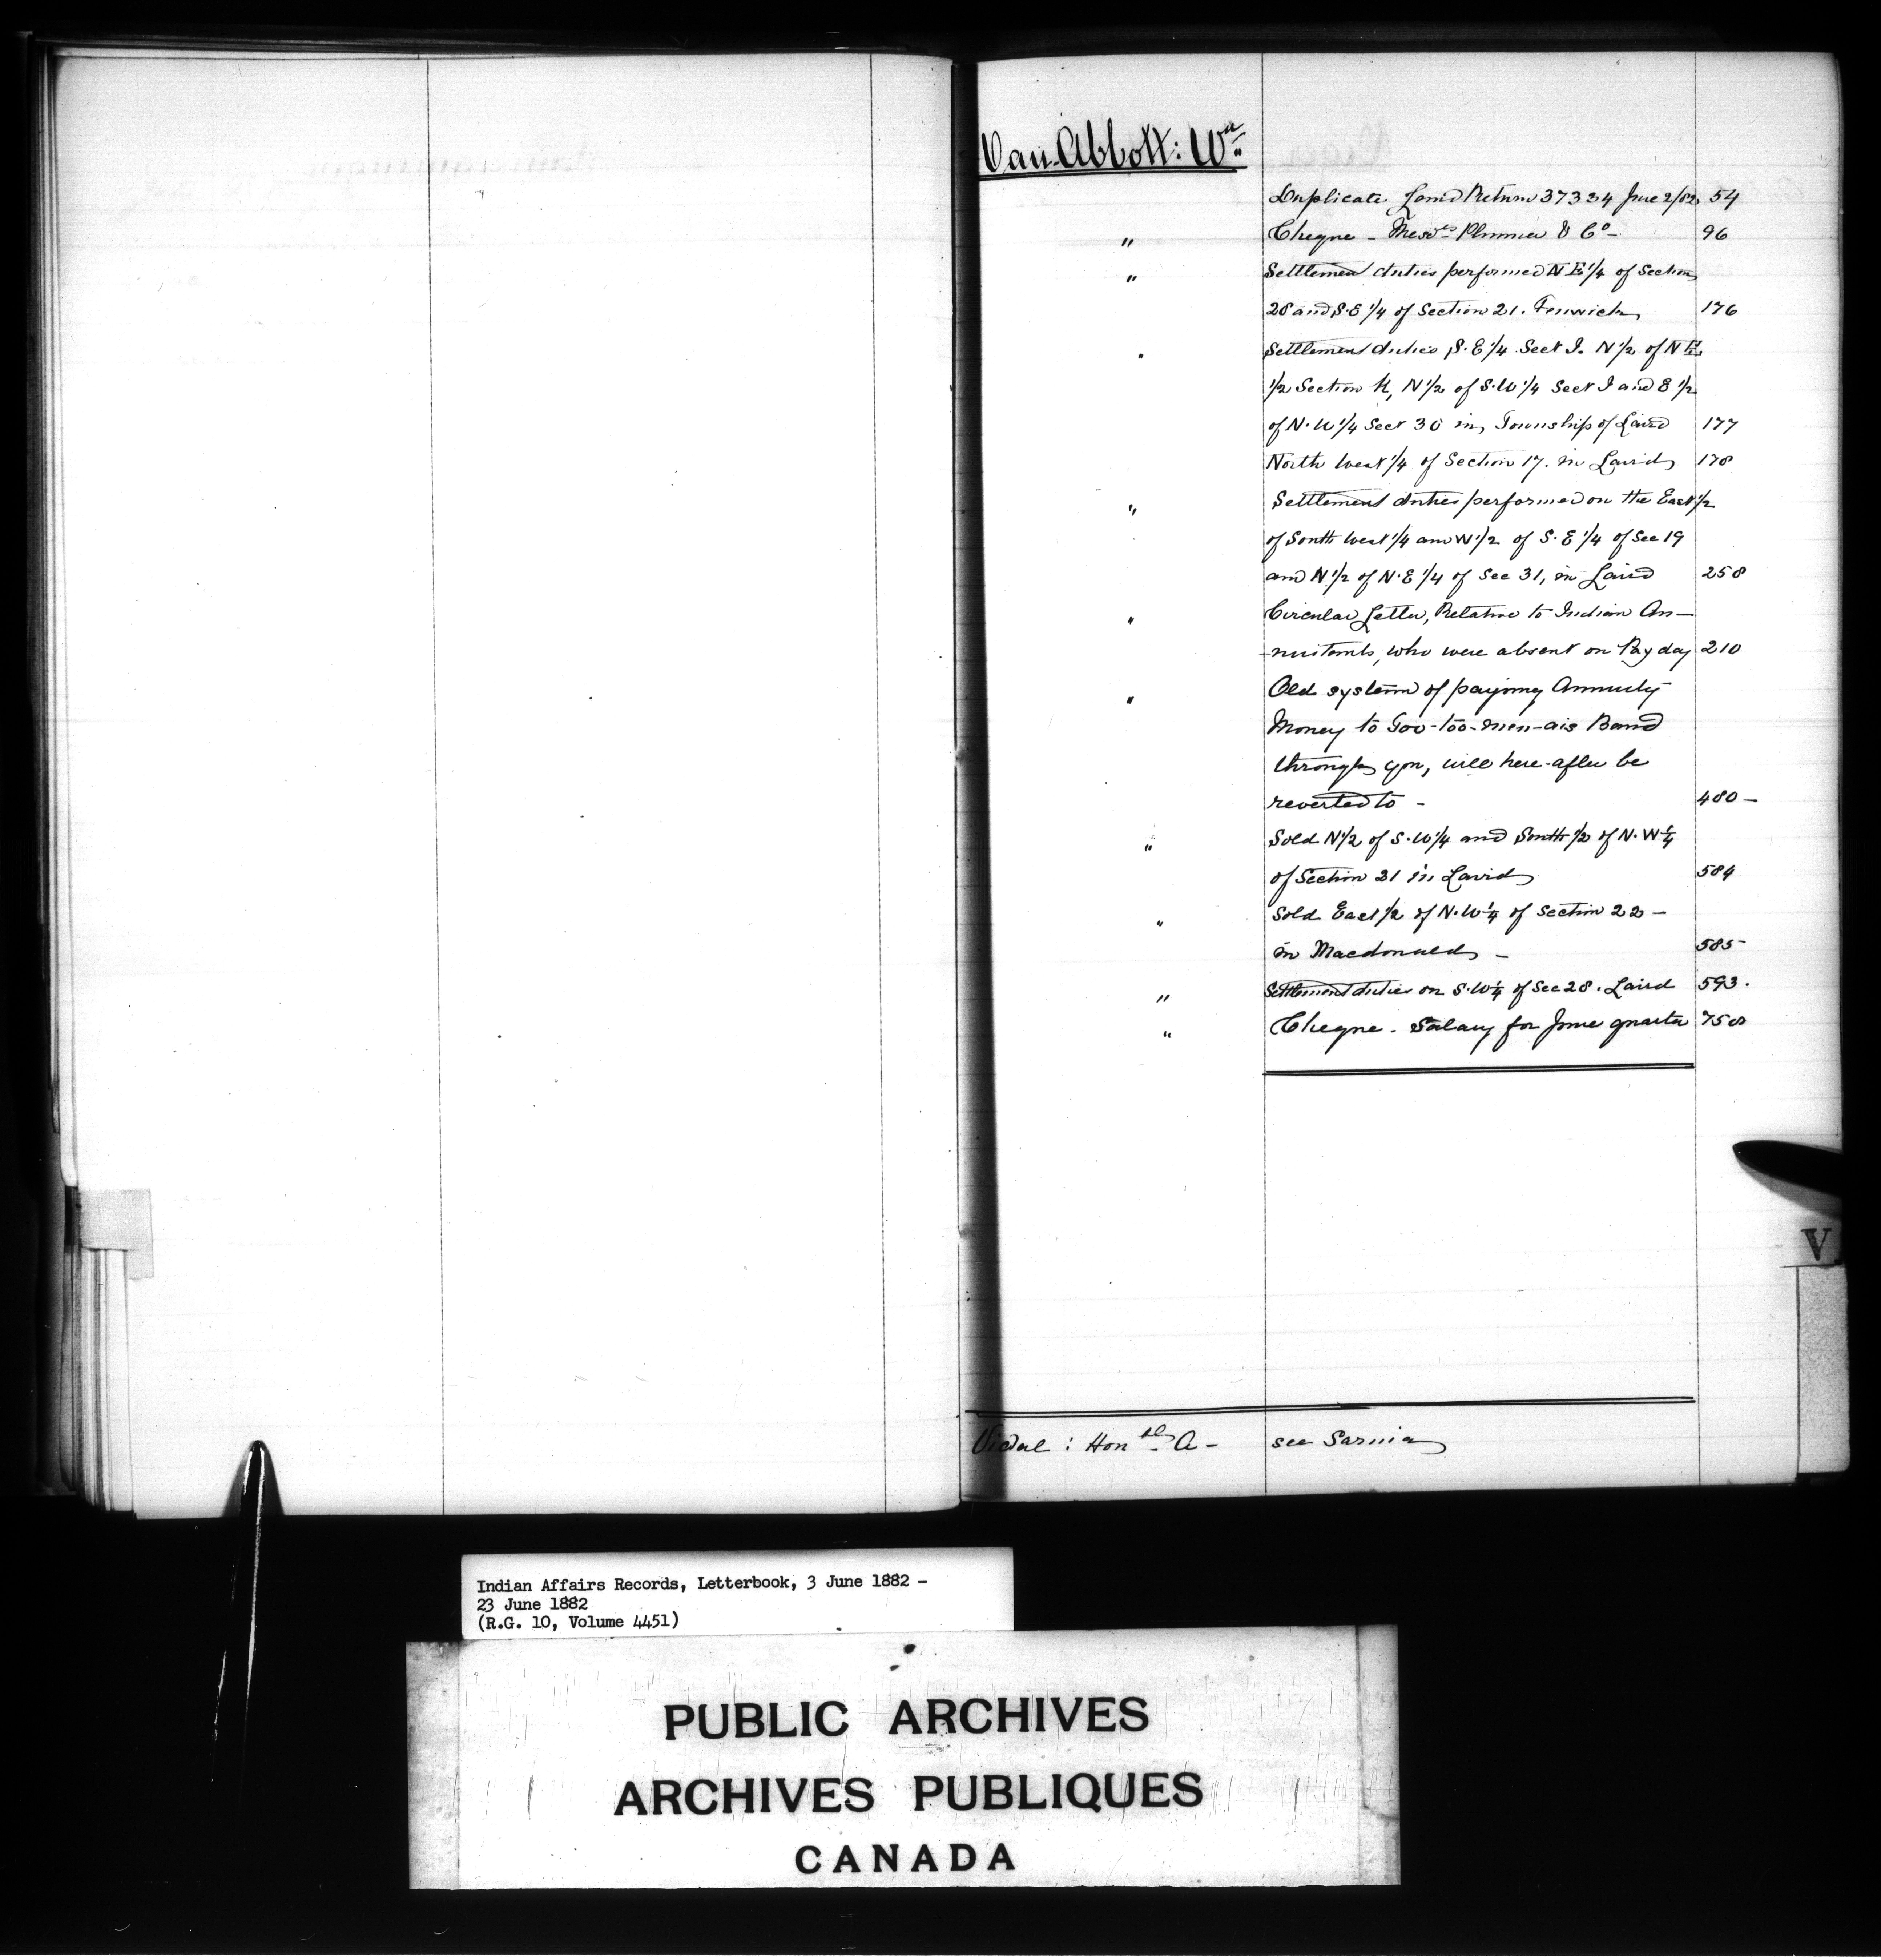 Van Abbott: Wm
Duplicate Land Return 37334 June 2/82 54
" Cheque - Messrs Plummer & Co - 96
" Settlement duties performed N E 1/4 of Section
28 and S.E 1/4 of Section 21. Fenwick 176
" Settlement duties S.E 1/4 Sect I. N 1/2 of N E
1/2 Section K, N 1/2 of S.W 1/4 Sect I and E 1/2
of N.W 1/4 Sect 30 in Township of Laird 177
North West 1/4 of Section 17. in Laird 178
" Settlement duties performed on the East 1/2
of South West 1/4 and W 1/2 of S.E 1/4 of Sec 19
and N 1/2 of N.E 1/4 of Sec 31, in Laird 258
" Circular Letter, Relative to Indian An-
-nuitants, who were absent on Pay day 210
" Old system of paying Annuity
Money to Too-too-men-ais Band
through you, will here-after be
reverted to - 480 -
" Sold N 1/2 of S.W 1/4 and South 1/2 of N.W 1/4
of Section 21 in Laird 584
" Sold East 1/2 of N.W 1/4 of Section 22 -
in Macdonald - 585 -
" Settlement duties on S.W 1/4 of Sec 28. Laird 593.
" Cheque - Salary for June quarter 758
V
Vidal : Honble A - see Sarnia
Indian Affairs Records, Letterbook, 3 June 1882 -
23 June 1882
(R.G. 10, Volume 4451)
PUBLIC ARCHIVES
ARCHIVES PUBLIQUES
CANADA